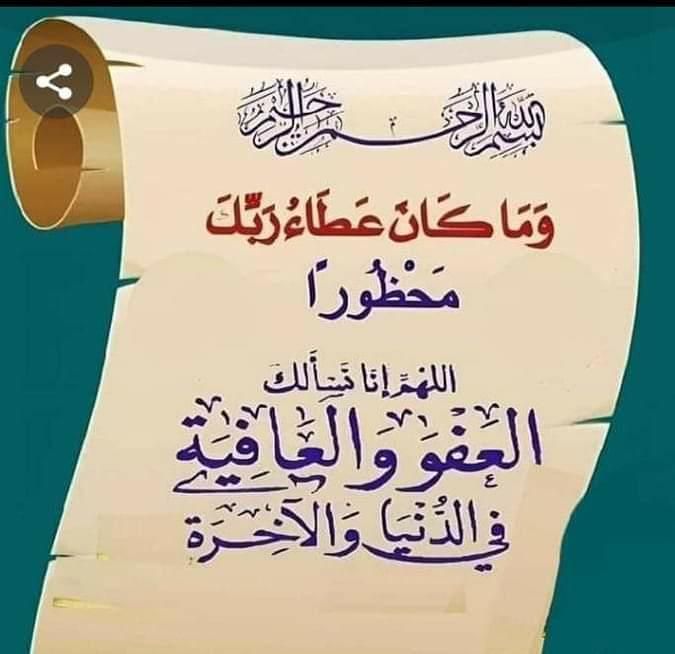 بسم الله الرحمن الرحيم
وَمَا كَانَ عَطَاءُ رَبِّكَ
مَحْظُورًا
اللهم إنا نسألك
العَفْوَ وَالعَافِيَة
في الدُّنْيَا وَالآخِرَة